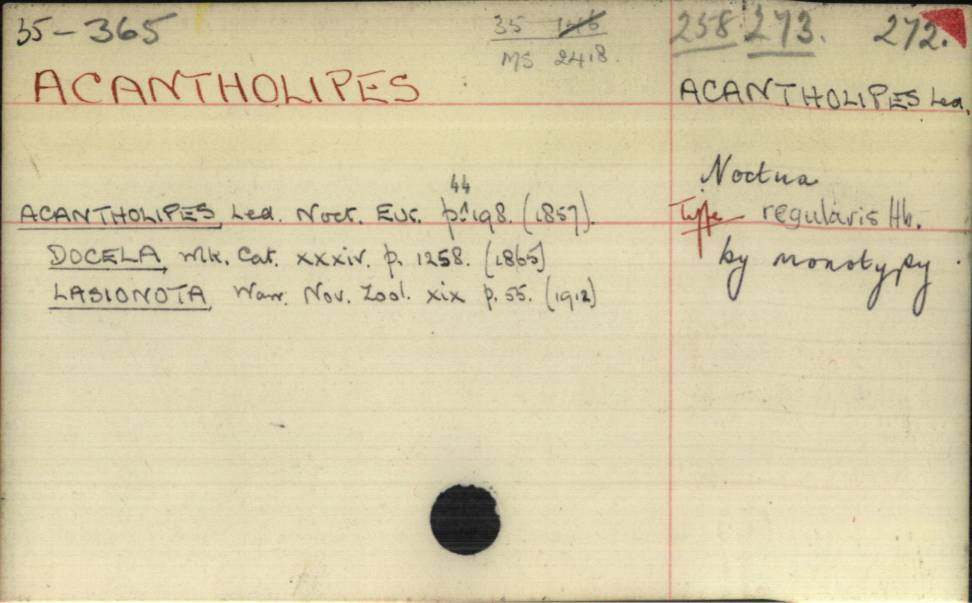 35-365
35 146
MS 2418.
258 273. 272.
ACANTHOLIPES
ACANTHOLIPES Led.
Noctua
Type regularis Hb.
by monotypy.
44
ACANTHOLIPES, Led. Noct. Eur. p^198. (1857).
DOCELA, Wlk. Cat. xxxiv. p. 1258. (1865)
LASIONOTA, Warr. Nov. Zool. xix p. 55. (1912)